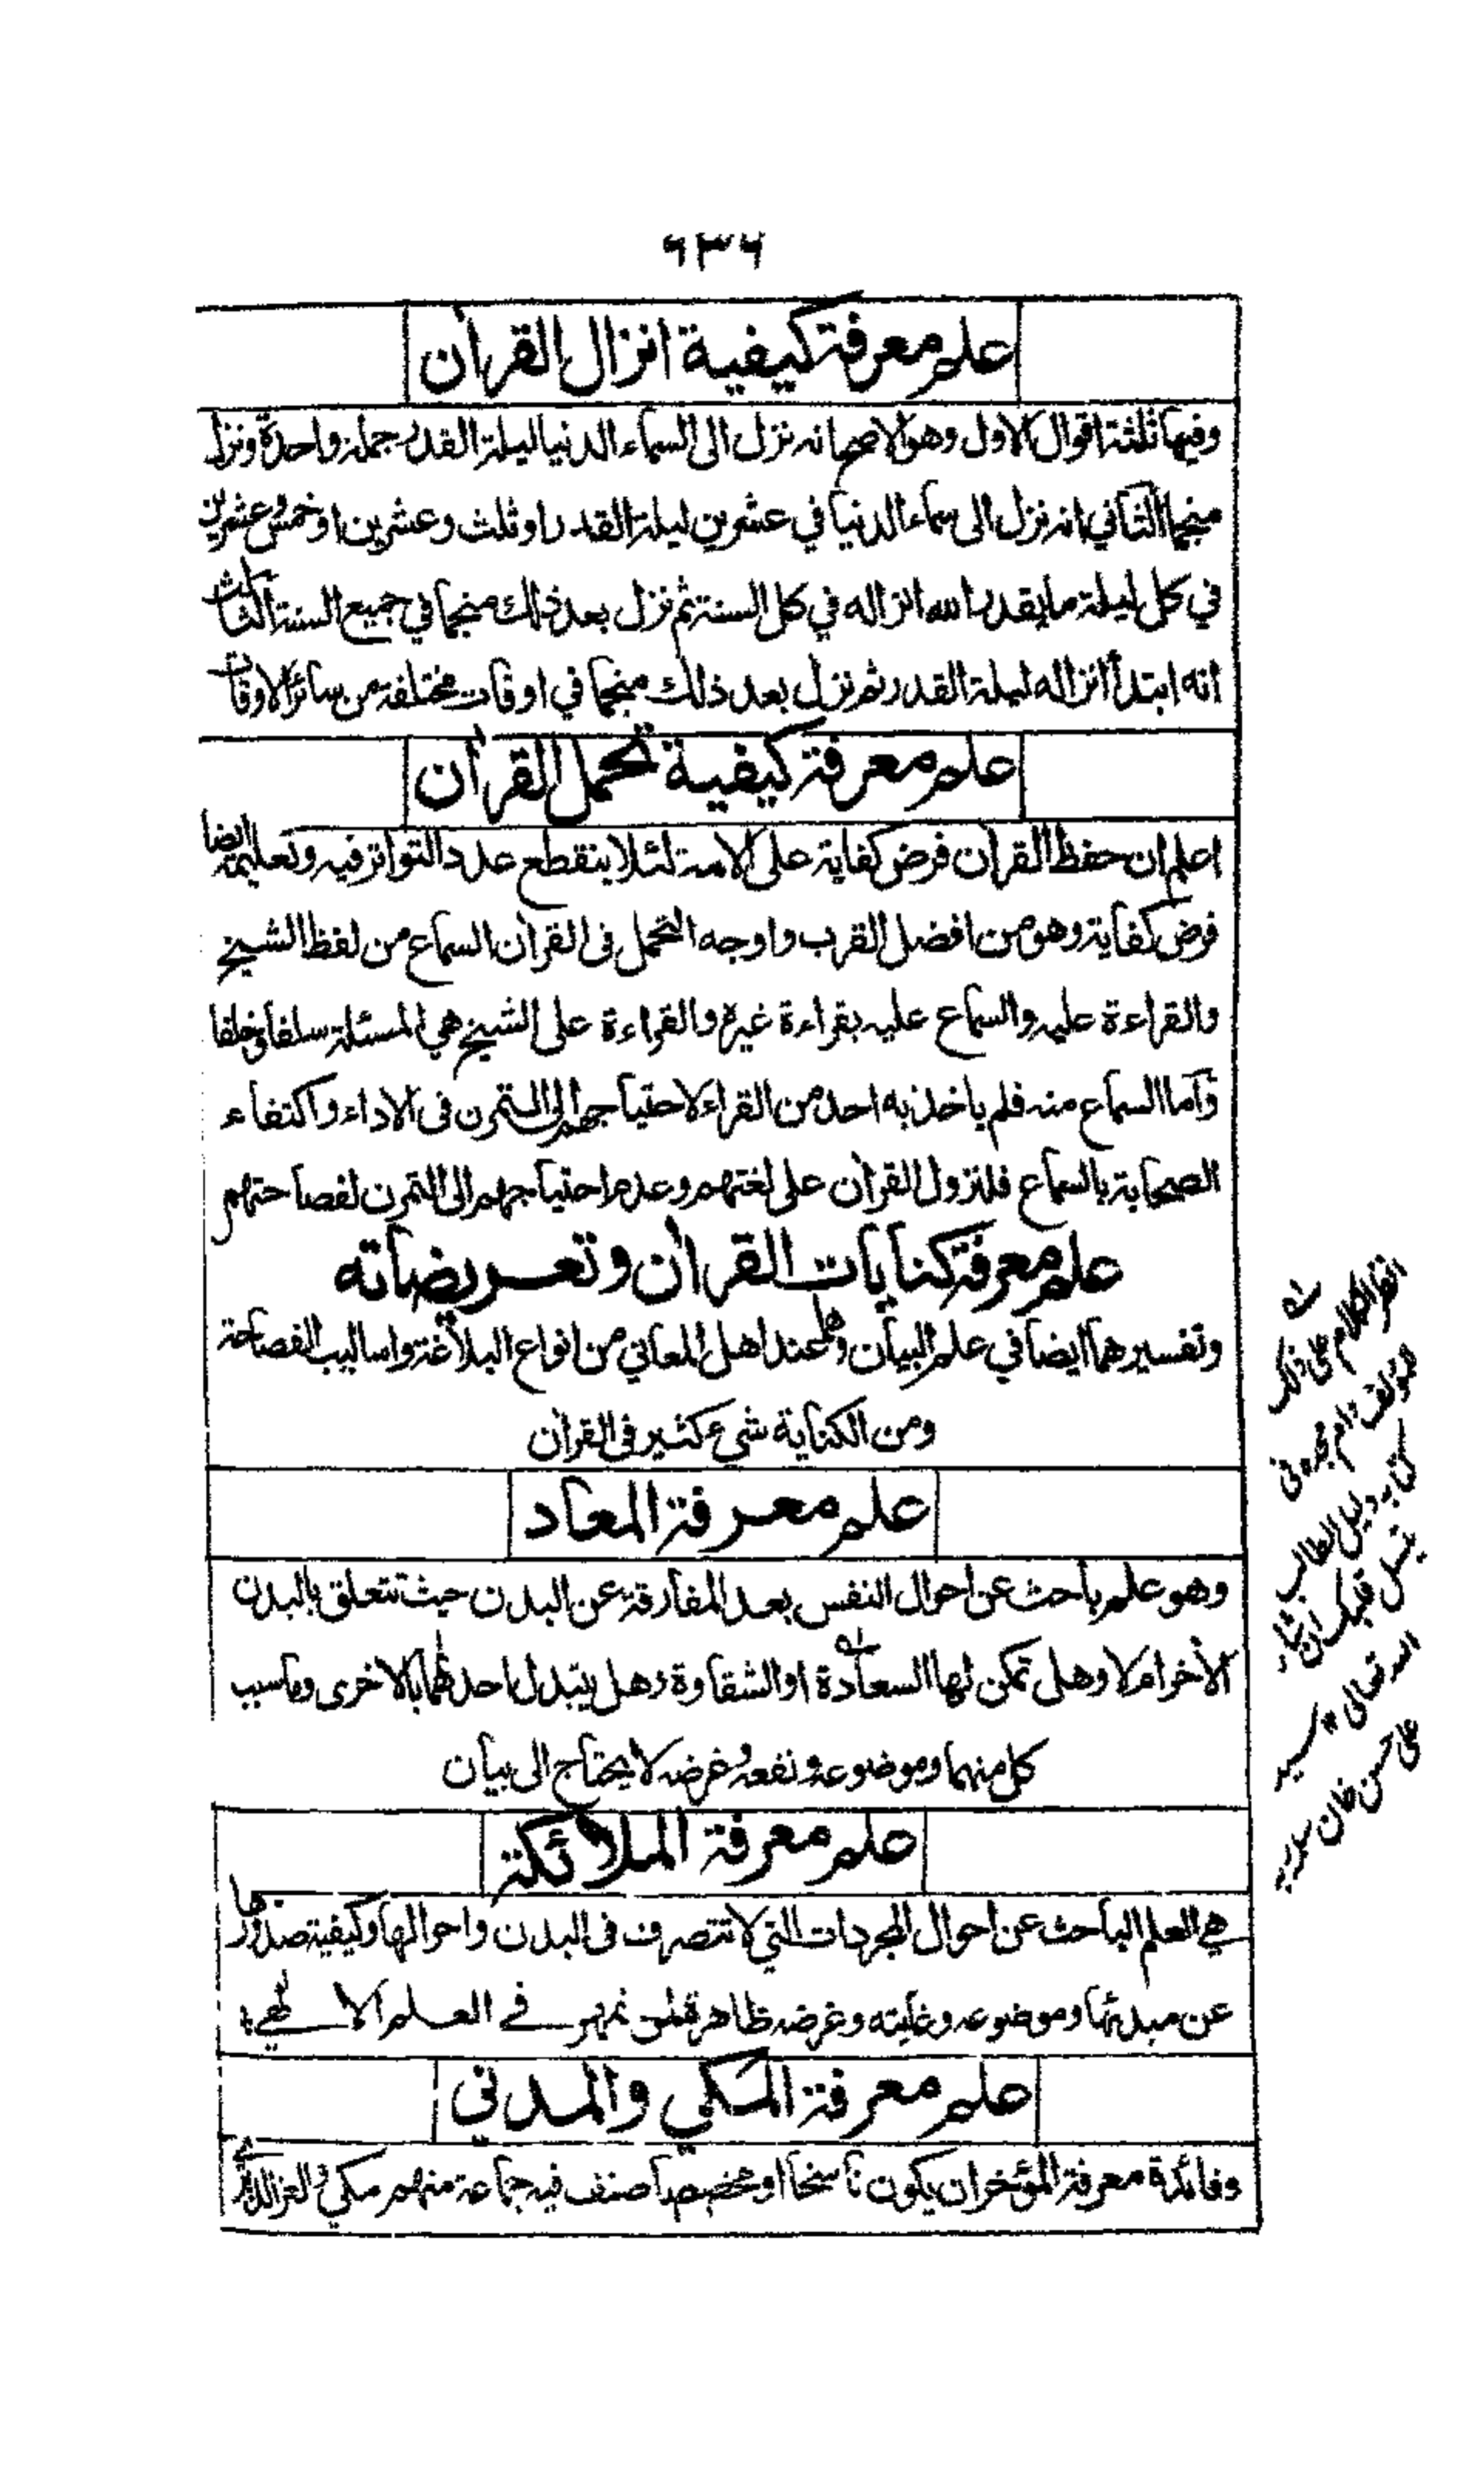 ٦٣٦
علم معرفة كيفية انزال القرآن
وفيها ثلثة اقوال الاول وهو الاصح انه نزل الى السماء الدنيا ليلة القدر جملة واحدة ونزل
منجما الثاني انه نزل الى سماء الدنيا في عشرين ليلة القدر او ثلث وعشرين او خمس وعشرين
في كل ليلة ما يقدر الله انزاله في كل السنة ثم نزل بعد ذلك منجما في جميع السنة الثالث
انه ابتدأ انزاله ليلة القدر ثم نزل بعد ذلك منجما في اوقات مختلفة من سائر الاوقات
علم معرفة كيفية تحمل القرآن
اعلم ان حفظ القرآن فرض كفاية على الامة لئلا ينقطع عدد التواتر فيه وتعليمه ايضا
فرض كفاية وهو من افضل القرب واوجه التحمل فى القرآن السماع من لفظ الشيخ
والقراءة عليه والسماع عليه بقراءة غيره والقراءة على الشيخ هي المسئلة سلفا وخلفا
واما السماع منه فلم ياخذ به احد من القراء لاحتياجهم الى التمرن فى الاداء واكتفاء
الصحابة بالسماع فلنزول القرآن على لغتهم وعدم احتياجهم الى التمرن لفصاحتهم
علم معرفة كنايات القرآن وتعريضاته
وتفسيرهما ايضا في علم البيان وهما عند اهل المعاني من انواع البلاغة واساليب الفصاحة
ومن الكناية شيء كثير فى القرآن
علم معرفة المعاد
وهو علم باحث عن احوال النفس بعد المفارقة عن البدن حيث تتعلق بالبدن
الآخر ام لا وهل تمكن لها السعادة او الشقاوة وهل يتبدل احدهما بالاخرى وما سبب
كل منهما وموضوعه ونفعه وغرضه لا يحتاج الى بيان
علم معرفة الملائكة
هي العلم الباحث عن احوال المجردات التي لا تتصرف فى البدن واحوالها وكيفية صدورها
عن مبدئها وموضوعه وغايته وغرضه ظاهرة لمن تمهر في العلم الالهي
علم معرفة المكي والمدني
وفائدة معرفة المؤخر ان يكون ناسخا او مخصصا صنف فيه جماعة منهم مكي والعز الدريني
انظر الكلام على ذلك
لمؤلف دام مجده في
كتابه دليل الطالب
الله تعالى * سيد
على حسن خان سلمه